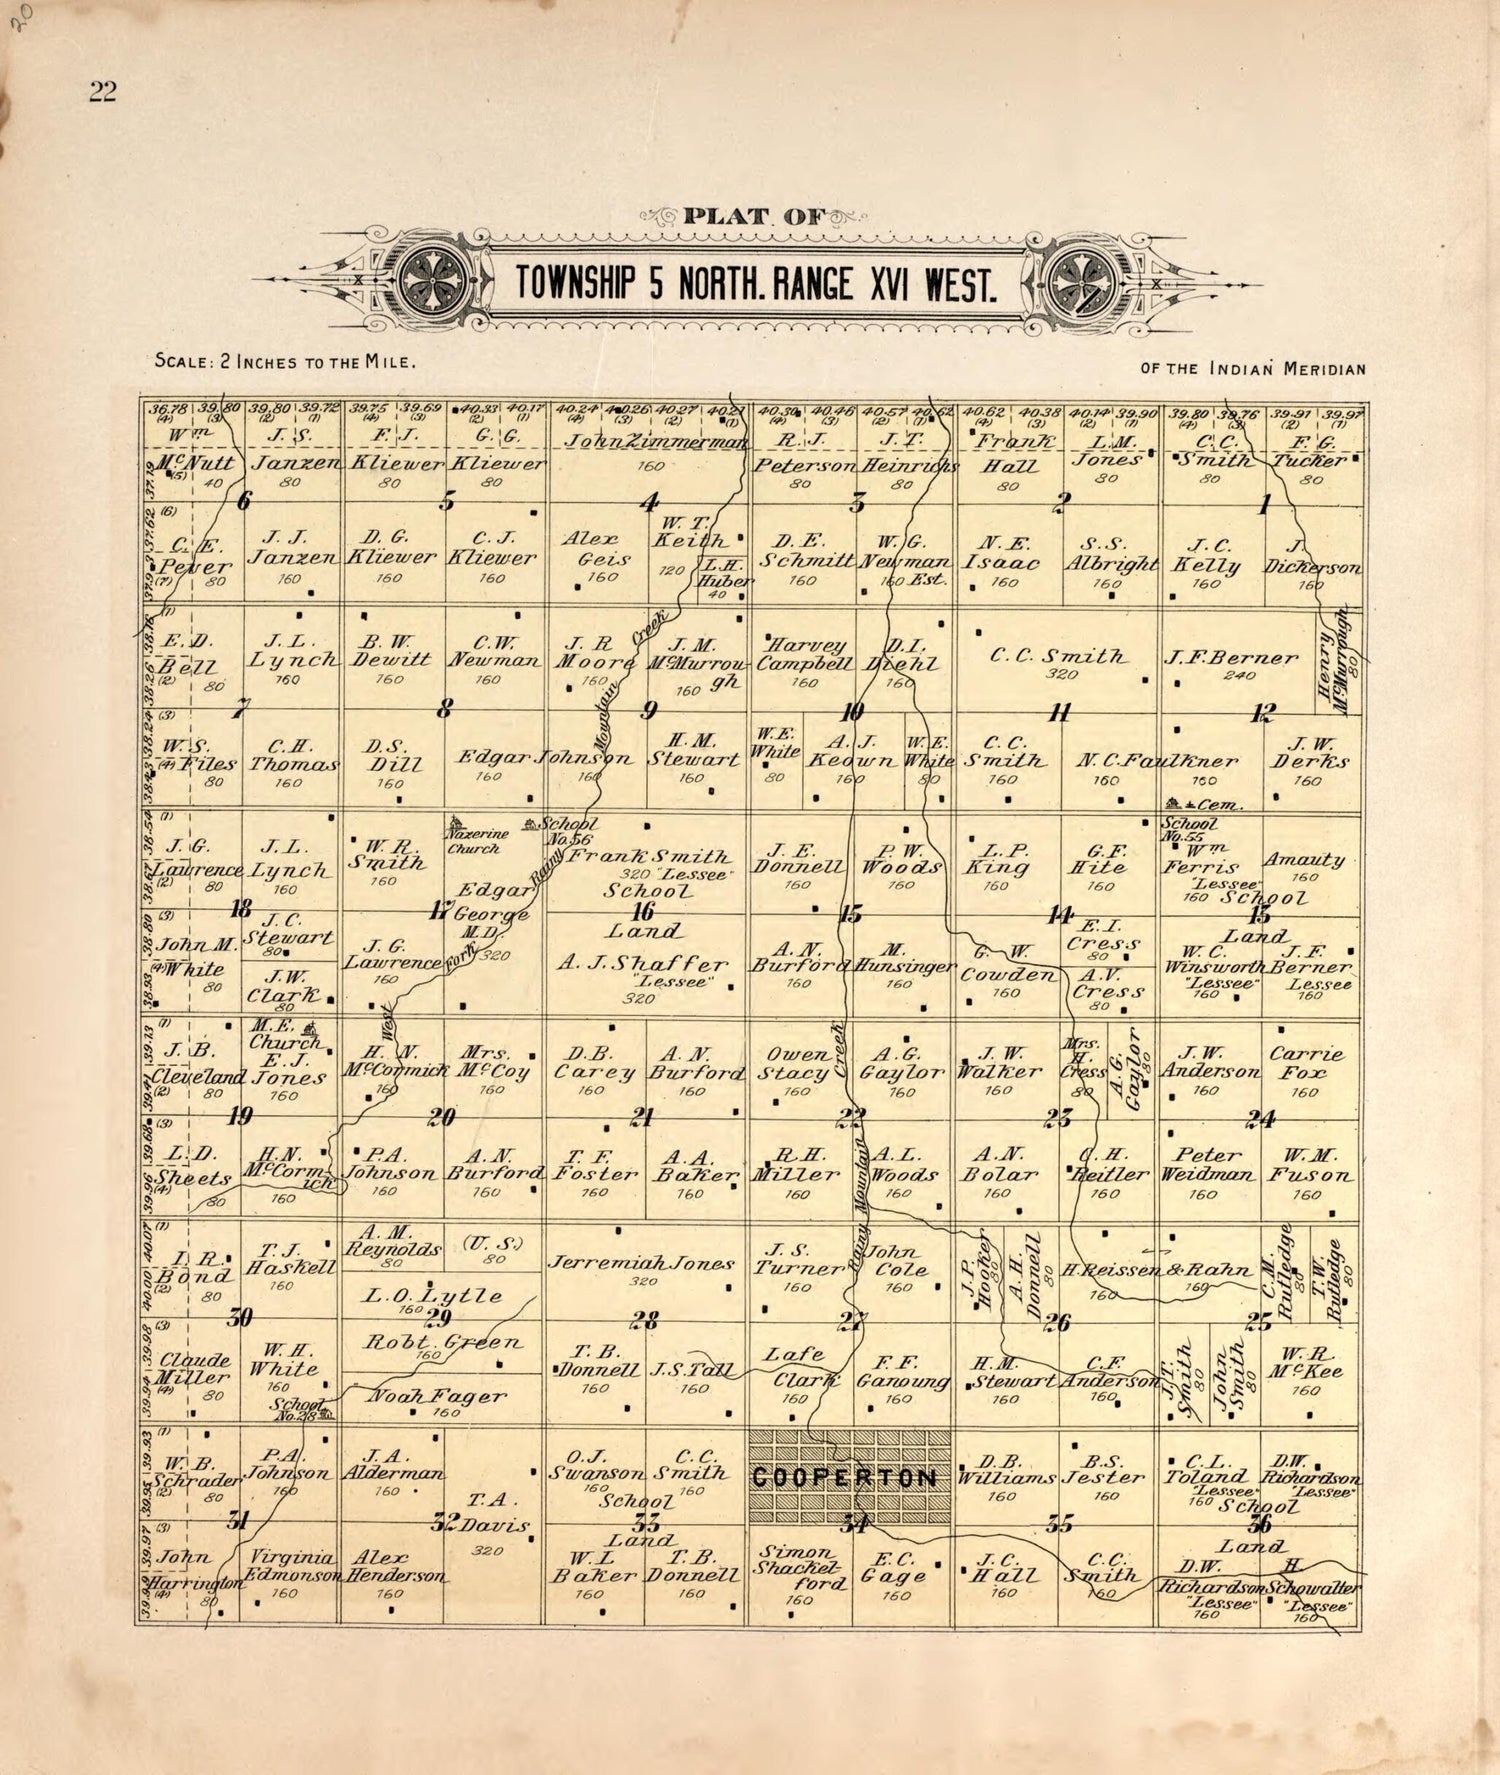 20
22
PLAT OF
TOWNSHIP 5 NORTH. RANGE XVI WEST.
SCALE: 2 INCHES TO THE MILE.
OF THE INDIAN MERIDIAN
36.78 39.80 39.80 39.72 39.75 39.69 40.33 40.17 40.24 40.26 40.27 40.30 40.46 40.57 40.62 40.62 40.38 40.14 39.90 39.80 39.76 39.91 39.97
(4) (3) (2) (1) (4) (3) (2) (1) (4) (3) (2) (1) (4) (3) (2) (1) (4) (3) (2) (1) (4) (3) (2) (1)
Wm J. S. F. J. G. G. John Zimmerman R. J. J. T. Frank L. M. C. C. F. G.
McNutt Janzen Kliewer Kliewer 160 Peterson Heinrichs Hall Jones Smith Tucker
37.19 (5) 40 80 80 80 80 80 80 80 80 80
6 5 4 3 2 1
37.62 (6)
C. E. J. J. D. G. C. J. Alex W. T. D. E. W. G. N. E. S. S. J. C. J.
Pever Janzen Kliewer Kliewer Geis Keith Schmitt Newman Isaac Albright Kelly Dickerson
(7) 80 160 160 160 160 120 L. H. Huber 40 160 160 Est. 160 160 160 160
38.16 (1)
E. D. J. L. B. W. C. W. J. R J. M. Harvey D. I. C. C. Smith J. F. Berner Henry
Bell Lynch Dewitt Newman Moore McMurrou Campbell Diehl 320 240 McMurrough
38.26 (2) 80 160 160 160 160 160 gh 160 160 80
Mountain Creek
7 8 9 10 11 12
38.24 (3)
W. S. C. H. D. S. Edgar Johnson H. M. W. E. A. J. W. E. C. C. N. C. Faulkner J. W.
Files Thomas Dill 160 160 Stewart White Keown White Smith 160 160 Derks
(4) 80 160 160 160 80 160 80 160 160
Cem.
38.54 (1)
Nazerine Church
School No. 56
School No. 55
J. G. J. L. W. R. Frank Smith J. E. P. W. L. P. G. F. Wm Amauty
Lawrence Lynch Smith 320 "Lessee" Donnell Woods King Hite Ferris 160
38.67 (2) 80 160 160 School 160 160 160 160 "Lessee" 160 School
Edgar George M. D. 320
Rainy
18 17 16 15 14 13
38.80 (3)
John M. J. C. J. G. Land A. N. M. G. W. E. I. Land
White Stewart Lawrence A. J. Shaffer Burford Hunsinger Cowden Cress W. C. J. F.
38.93 (4) 80 80 160 "Lessee" 160 160 160 80 Winsworth Berner
J. W. Clark 80 320 A. V. Cress 80 "Lessee" 160 Lessee 160
West Fork
39.13 (1)
J. B. M. E. Church H. N. Mrs. D. B. A. N. Owen A. G. J. W. Mrs. H. A. G. J. W. Carrie
Cleveland E. J. Jones McCormick McCoy Carey Burford Stacy Gaylor Walker Cress Gaylor Anderson Fox
39.41 (2) 80 160 160 160 160 160 160 160 160 80 80 160 160
Creek
19 20 21 22 23 24
39.68 (3)
L. D. H. N. P. A. A. N. T. F. A. A. R. H. A. L. A. N. C. H. Peter W. M.
Sheets McCorm- ick Johnson Burford Foster Baker Miller Woods Bolar Reitler Weidman Fuson
39.96 (4) 80 160 160 160 160 160 160 160 160 160 160 160
Rainy Mountain
40.07 (1)
I. R. T. J. A. M. (U. S.) Jerremiah Jones J. S. John J. P. A. H. H. Reissen & Rahn C. M. T. W.
Bond Haskell Reynolds 80 320 Turner Cole Hooker Donnell 160 160 Rutledge Rutledge
40.00 (2) 80 160 80 160 160 80 80 80 80
L. O. Lytle
160
30 29 28 27 26 25
39.98 (3)
Robt. Green
160
Claude W. H. T. B. J. S. Tall Lafe F. F. H. M. C. F. J. T. John W. R.
Miller White Donnell 160 Clark Ganoung Stewart Anderson Smith Smith McKee
39.94 (4) 80 160 160 160 160 160 160 80 80 160
Noah Fager
160
School No. 28
39.93 (1)
W. B. P. A. J. A. O. J. C. C. COOPERTON D. B. B. S. C. L. D. W.
Schrader Johnson Alderman Swanson Smith Williams Jester Toland Richardson
39.95 (2) 80 160 160 160 160 160 160 "Lessee" "Lessee"
School 160 School
T. A. Davis 320
31 32 33 34 35 36
39.97 (3)
Land Land
John Virginia Alex W. L T. B. Simon E. C. J. C. C. C. D. W. H.
Harrington Edmonson Henderson Baker Donnell Shackel- ford Gage Hall Smith Richardson Schowalter
39.99 (4) 80 160 160 160 160 160 160 160 160 "Lessee" 160 "Lessee" 160